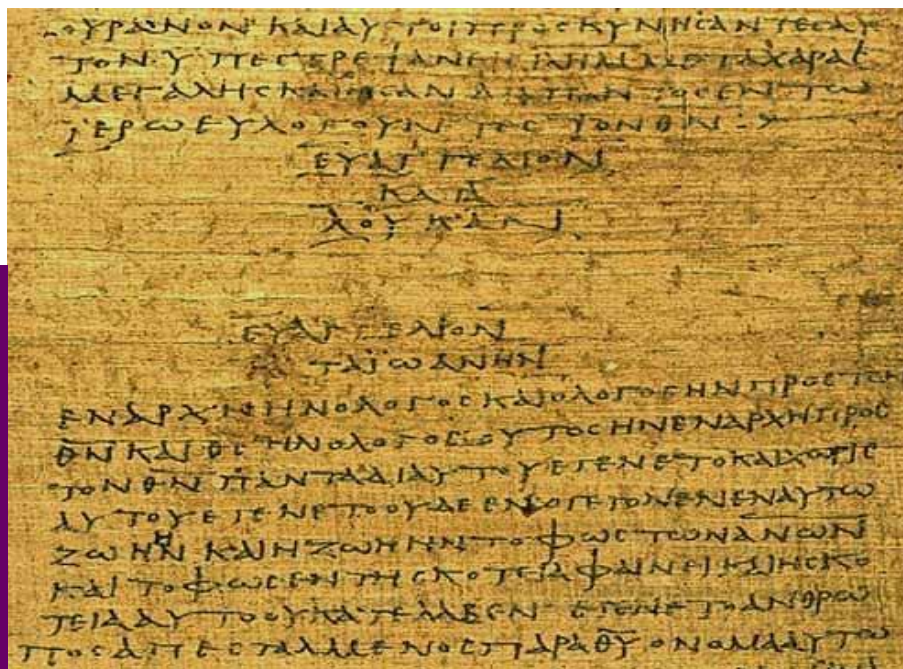 ΟΥΡΑΝΟΝ ΚΑΙ ΑΥΤΟΙ ΠΡΟϹΚΥΝΗϹΑΝΤΕϹ ΑΥ
ΤΟΝ ΥΠΕϹΤΡΕΨΑΝ ΕΙϹ ΜΕΤΑ ΧΑΡΑϹ
ΜΕΓΑΛΗϹ ΚΑΙ ΗϹΑΝ ΔΙΑ ΠΑΝΤΟϹ ΕΝ ΤΩ
ΙΕΡΩ ΕΥΛΟΓΟΥΝΤΕϹ ΤΟΝ Θ̅Ν̅
ΕΥΑΓΓΕΛΙΟΝ
ΚΑΤΑ
ΛΟΥΚΑΝ
ΕΥΑΓΓΕΛΙΟΝ
ΤΑ ΙΩΑΝΗΝ
ΕΝ ΑΡΧΗ ΗΝ Ο ΛΟΓΟϹ ΚΑΙ Ο ΛΟΓΟϹ ΗΝ ΠΡΟϹ ΤΟΝ
Θ̅Ν̅ ΚΑΙ Θ̅Ϲ̅ ΗΝ Ο ΛΟΓΟϹ ΟΥΤΟϹ ΗΝ ΕΝ ΑΡΧΗ ΠΡΟϹ
ΤΟΝ Θ̅Ν̅ ΠΑΝΤΑ ΔΙ ΑΥΤΟΥ ΕΓΕΝΕΤΟ ΚΑΙ ΧΩΡΙϹ
ΑΥΤΟΥ ΕΓΕΝΕΤΟ ΟΥΔΕ ΕΝ Ο ΓΕΓΟΝΕΝ ΕΝ ΑΥΤΩ
ΖΩΗ ΗΝ ΚΑΙ Η ΖΩΗ ΗΝ ΤΟ ΦΩϹ ΤΩΝ Α̅Ν̅Ω̅Ν̅
ΚΑΙ ΤΟ ΦΩϹ ΕΝ ΤΗ ϹΚΟΤΕΙΑ ΦΑΙΝΕΙ ΚΑΙ Η ϹΚΟ
ΤΕΙΑ ΑΥΤΟ ΟΥ ΚΑΤΕΛΑΒΕΝ ΕΓΕΝΕΤΟ ΑΝΘΡΩ
ΠΟϹ ΑΠΕϹΤΑΛΜΕΝΟϹ ΠΑΡΑ Θ̅Υ̅ ΟΝΟΜΑ ΑΥΤΩ